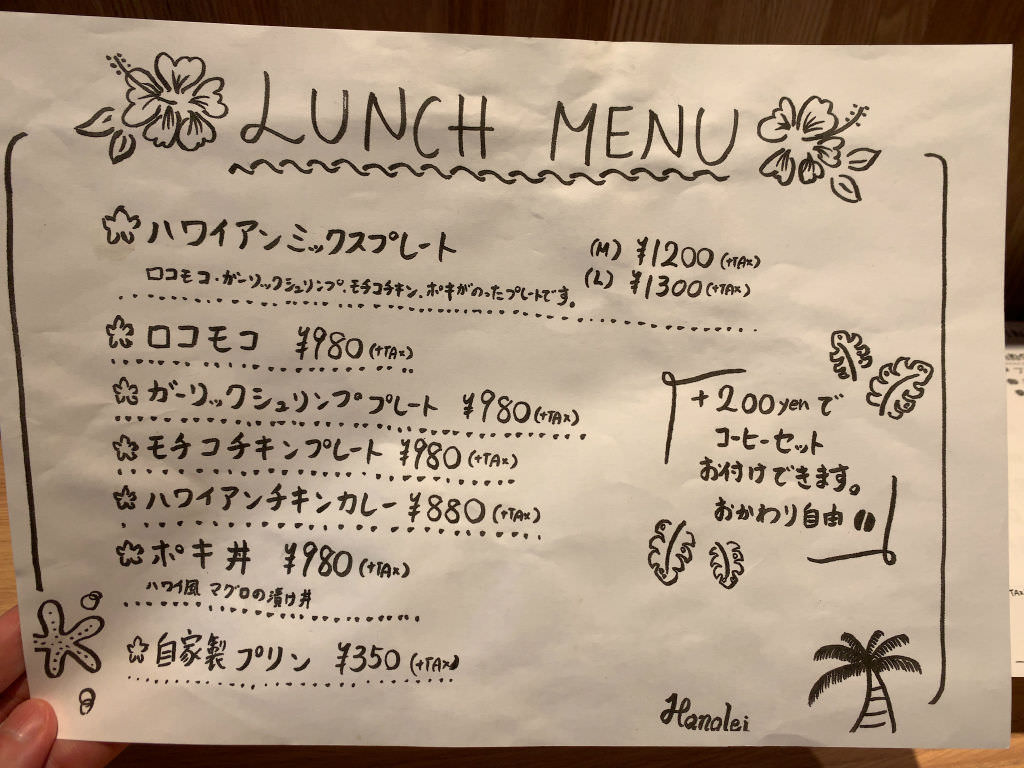 LUNCH MENU
ハワイアンミックスプレート (M) ¥1200 (+TAX)
(L) ¥1300 (+TAX)
ロコモコ・ガーリックシュリンプ、モチコチキン、ポキがのったプレートです。
ロコモコ ¥980 (+TAX)
ガーリックシュリンププレート ¥980 (+TAX)
モチコチキンプレート ¥980 (+TAX)
ハワイアンチキンカレー ¥880 (+TAX)
ポキ丼 ¥980 (+TAX)
ハワイ風 マグロの漬け丼
自家製プリン ¥350 (+TAX)
+200yenで
コーヒーセット
お付けできます。
おかわり自由
Hanalei